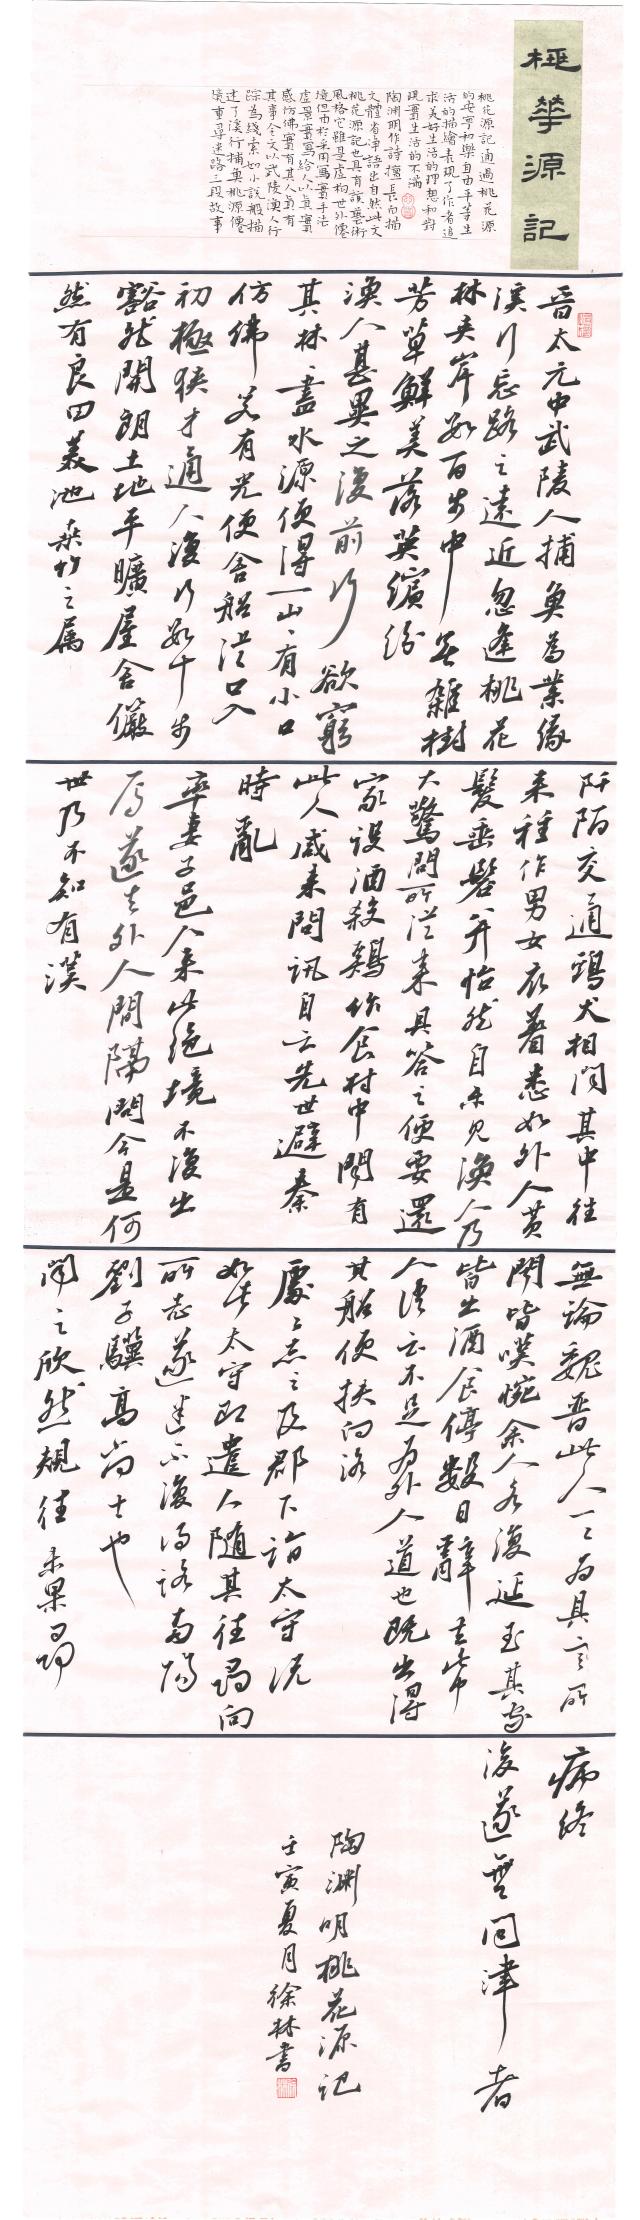 桃華源記
桃花源記通過桃花源
的安寧和樂自由平等生
活的描繪表現了作者追
求美好生活的理想和對
現實生活的不滿
陶淵明作詩擅長白描
文體省淨語出自然此文
桃花源記也具有該藝術
風格它雖是虛构世外僊
境但由於采用寫實手法
虛景實寫給人以真實
感仿佛實有其人真有
其事全文以武陵漁人行
踪為綫索如小說般描
述了溪行捕魚桃源僊
境重尋迷路三段故事
晋太元中武陵人捕魚為業緣
溪行忘路之遠近忽逢桃花
林夾岸數百步中無雜樹
芳草鮮美落英繽紛
漁人甚異之復前行欲窮
其林林盡水源便得一山山有小口
仿佛若有光便舍船從口入
初極狹才通人復行數十步
豁然開朗土地平曠屋舍儼
然有良田美池桑竹之屬
阡陌交通鷄犬相聞其中往
来種作男女衣著悉如外人黄
髮垂髫并怡然自樂見漁人乃
大驚問所從来具答之便要還
家設酒殺鷄作食村中聞有
此人咸来問訊自云先世避秦
時亂
率妻子邑人来此絶境不復出
焉遂与外人間隔問今是何
世乃不知有漢
無論魏晋此人一一為具言所
聞皆嘆惋余人各復延至其家
皆出酒食停數日辭去此中
人語云不足為外人道也既出得
其船便扶向路
處處志之及郡下詣太守說
如此太守即遣人随其往尋向
所志遂迷不復得路南陽
劉子驥高尚士也
聞之欣然規往未果尋
病終
後遂無問津者
陶淵明桃花源記
壬寅夏月徐林書